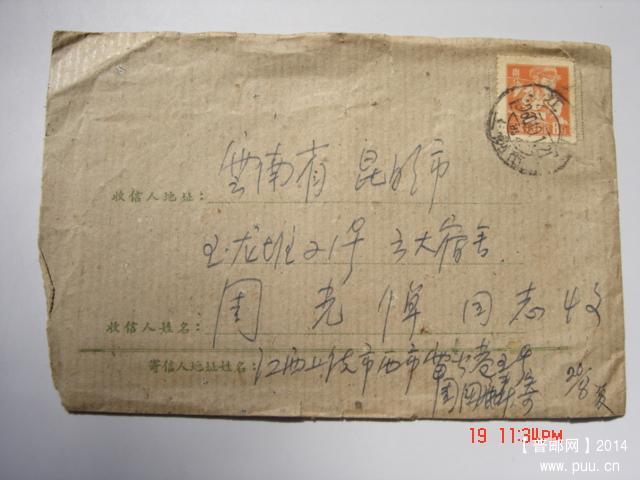 收信人地址：雲南省 昆明市
玉龙堆21号 云大宿舍
收信人姓名：周光倬 同志收
寄信人地址姓名：江西上饶市西市
周
寄
20/8
19 11:34PM
【普邮网】2014
www.puu.cn